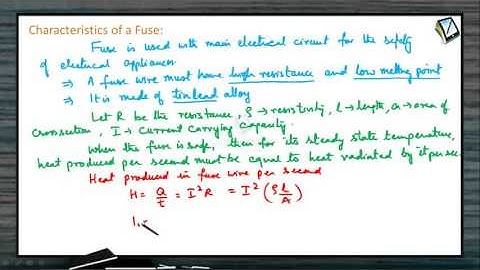 Characteristics of a Fuse:
Fuse is used with main electrical circuit for the safety
of electrical appliances.
⇒ A fuse wire must have high resistance and low melting point
⇒ It is made of tin lead alloy
Let R be the resistance, ρ → resistivity, l → length, a → area of
crossection, I → current carrying capacity.
When the fuse is safe, then for its steady state temperature,
heat produced per second must be equal to heat radiated by it per sec.
Heat produced in fuse wire per second
H = Q/t = I²R = I² (ρl/A)